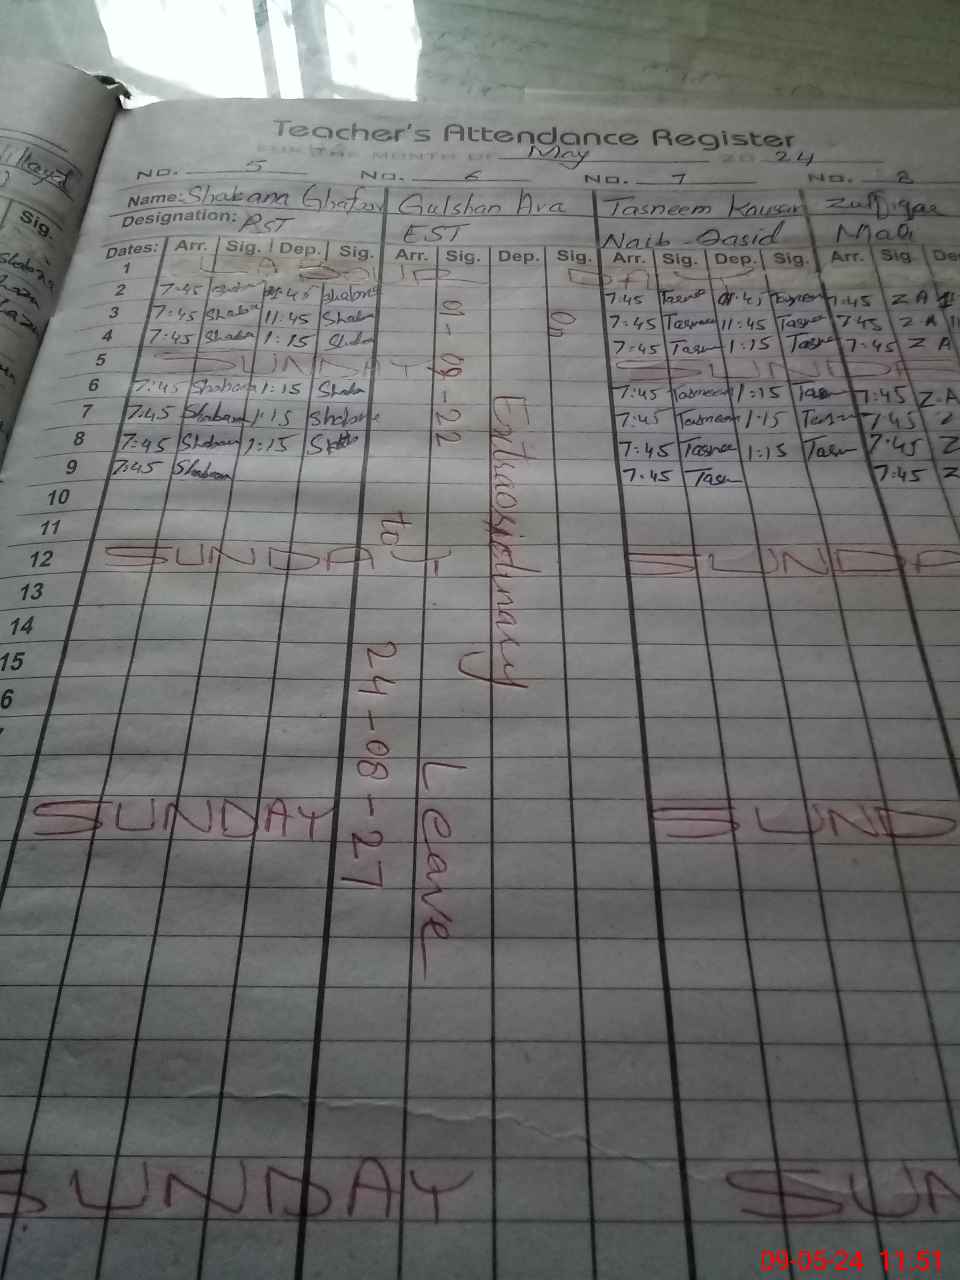 Teacher's Attendance Register
FOR THE MONTH OF May 20 24
No. 5 No. 6 No. 7 No. 8
Name: Shabana Ghafoor Gulshan Ara Tasneem Kausar Zulfiqar
Designation: PST EST Naib Qasid Mali
Dates: Arr. Sig. Dep. Sig. Arr. Sig. Dep. Sig. Arr. Sig. Dep. Sig. Arr. Sig. De
Sig.
1 LABOUR DAY
2 7:45 Shaban 11:45 Shabana 7:45 Tasne Tasneem 7:45 Z A
3 7:45 Shaba 11:45 Shaba 7:45 Tasnee 11:45 Tasnee 7:45 Z.A
4 7:45 Shaba 1:15 7:45 Tasn 1:15 Tasne 7:45 Z A
5 SUNDAY SUNDA
6 7:45 Shabana 1:15 Shaba 7:45 Tasneem 1:15 Tasn 7:45 Z.A
7 7:45 Shabana 1:15 Shabana 7:45 Tasneem 1:15 Tasn 7:45
8 7:45 Shabana 1:15 7:45 Tasnee 1:15 Tasn 7:45 Z
9 7:45 Shabana 7:45 Tasn 7:45 Z
10
11
12 SUNDAY SUNDA
13
14
15
6
SUNDAY SUND
SUNDAY SUN
On
Entraordunary Leave
01-09-22
to
24-08-27
09-05-24 11:51